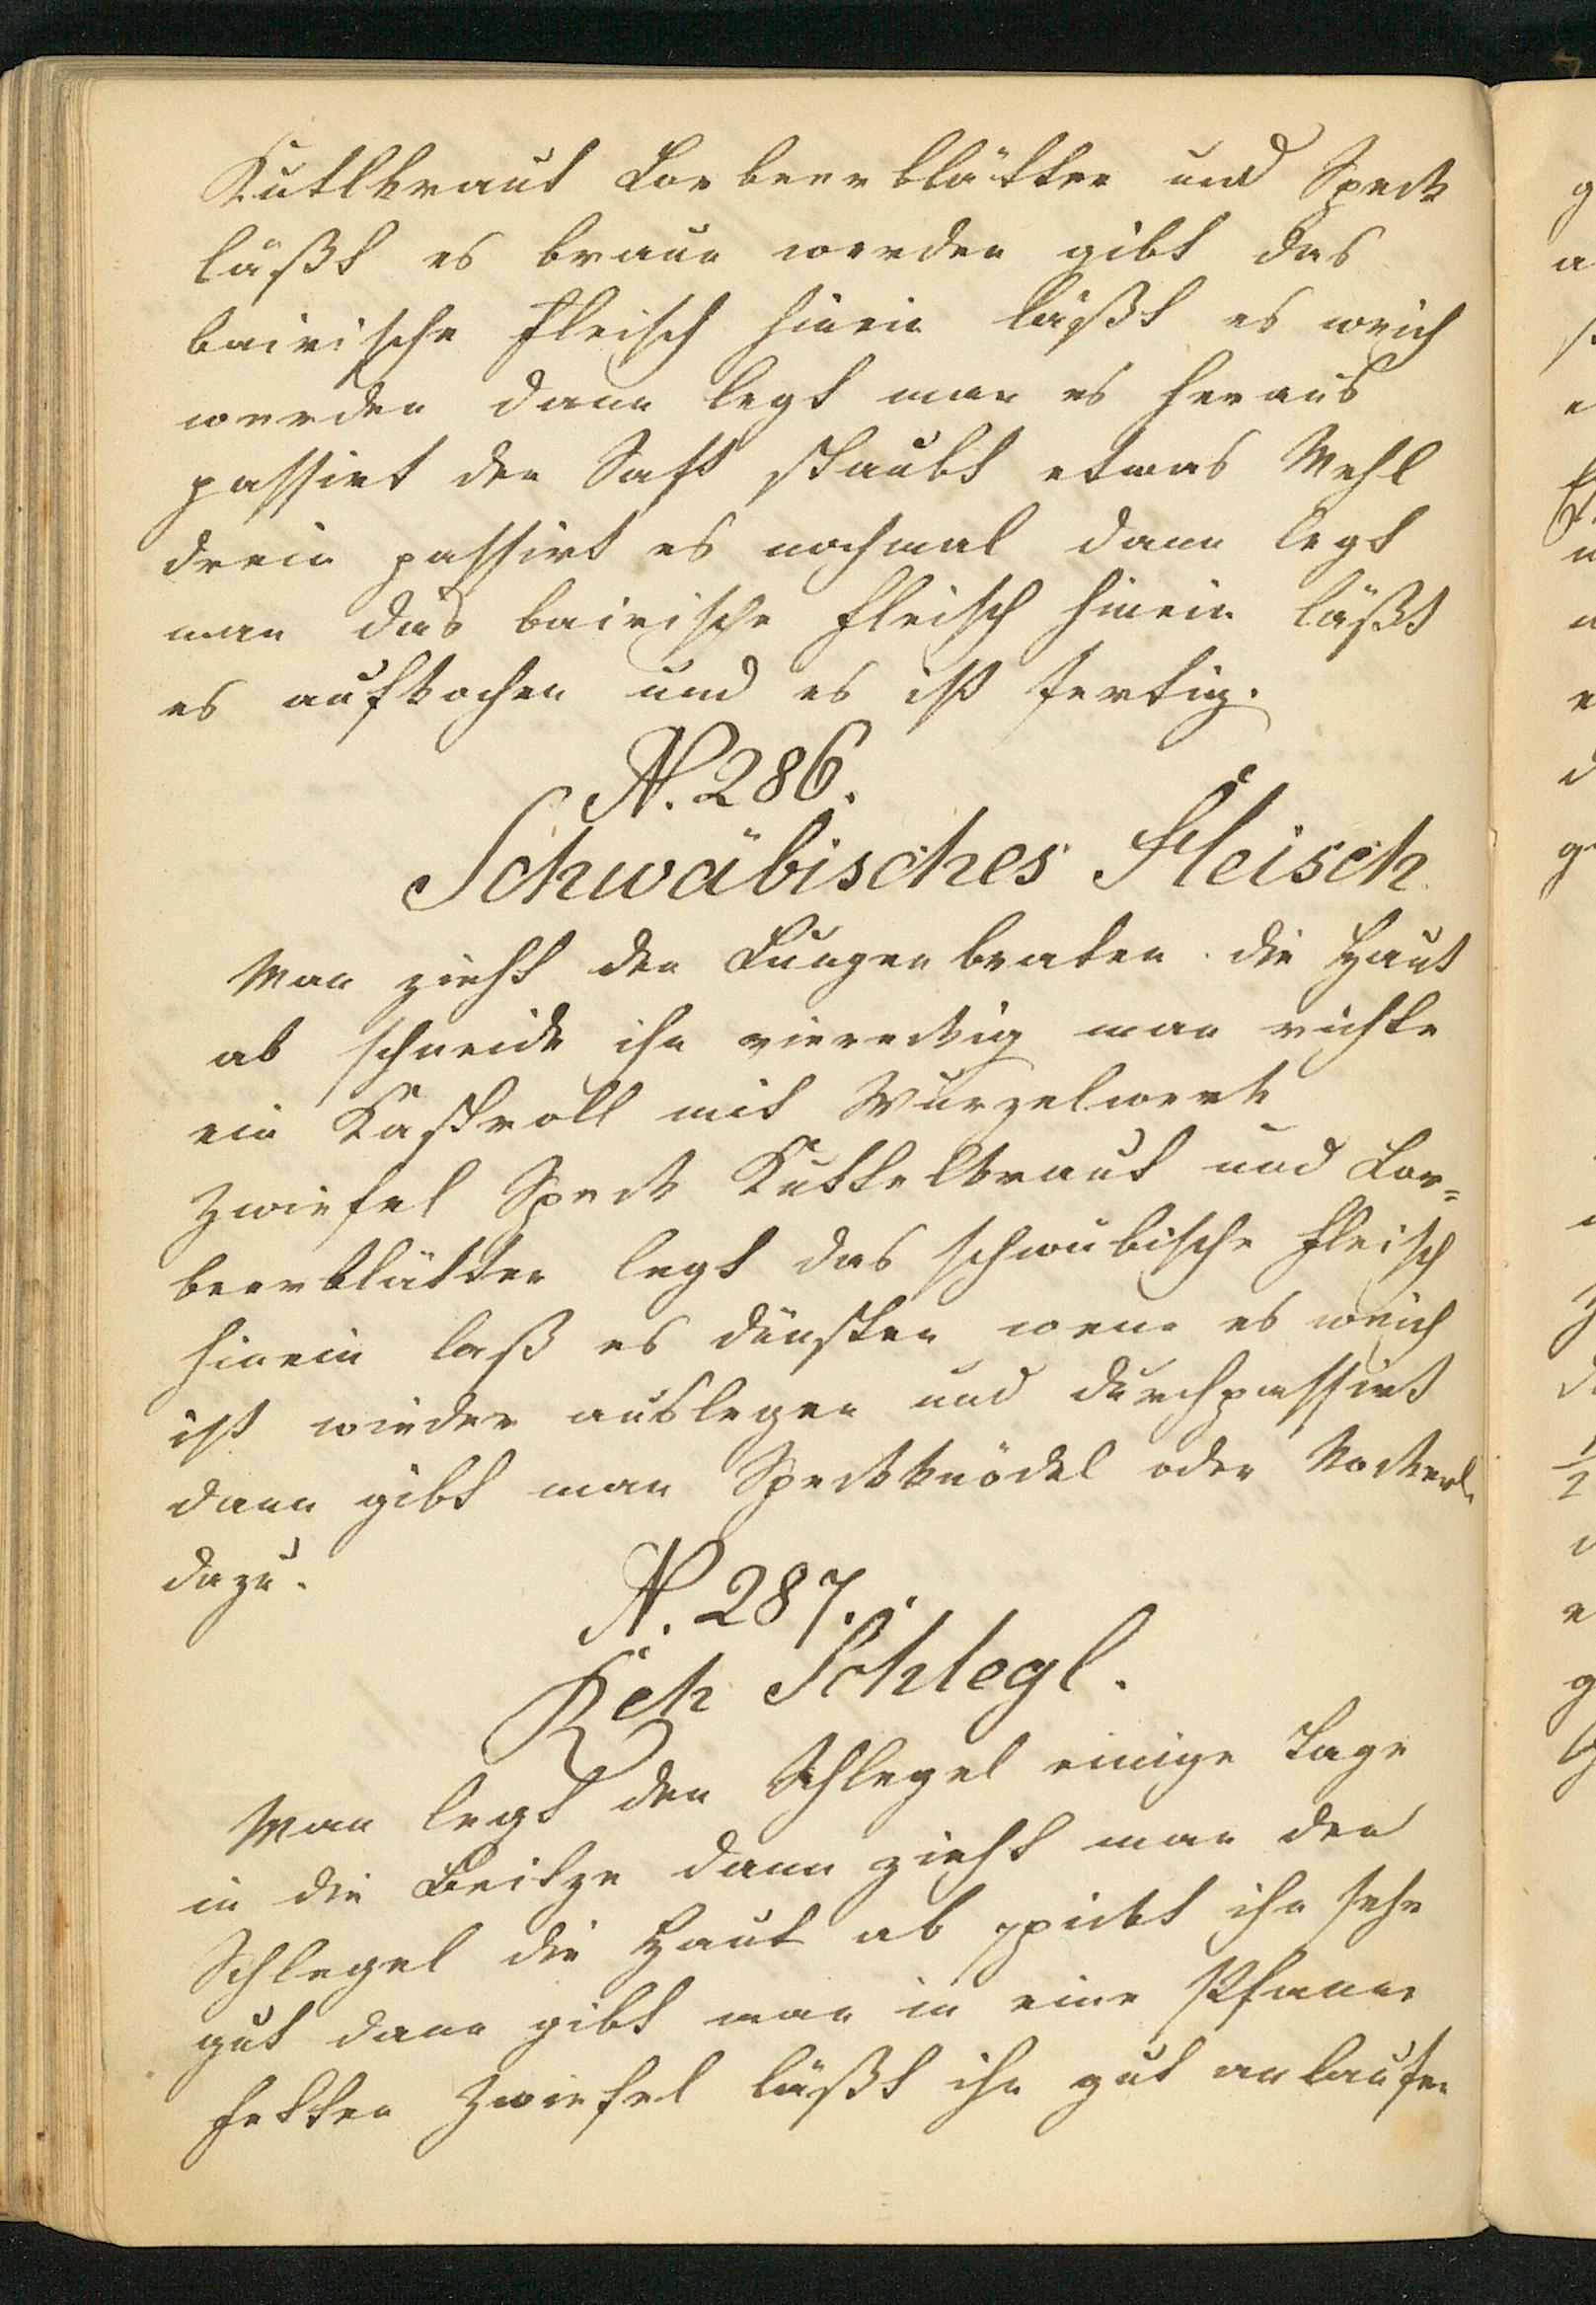 Kutlkraut Lorbeerblätter und Speck
läßt es braun werden gibt das
bairische Fleisch hinein läßt es weich
werden dann legt man es heraus
passirt den Saft staubt etwas Mehl
drein passirt es nochmal dann legt
man das bairische Fleisch hinein läßt
es aufkochen und es ist fertig.
N. 286.
Schwäbisches Fleisch.
Man zieht den Lungenbraten die Haut
ab schneide ihn viereckig man richte
ein Kastroll mit Wurzelwerk
Zwiefel Speck Kuttelkraut und Lor=
beerblätter legt das schwäbische Fleisch
hinein laß es dünsten wenn es weich
ist wieder auslegen und durchpassirt
dann gibt man Speckknödel oder Nockerl
dazu.
N. 287.
Reh Schlegl.
Man legt den Schlegel einige Tage
in die Beitze dann zieht man den
Schlegel die Haut ab spickt ihn sehr
gut dann gibt man in eine Pfanne
Fetten Zwiefel läßt ihn gut anlaufen